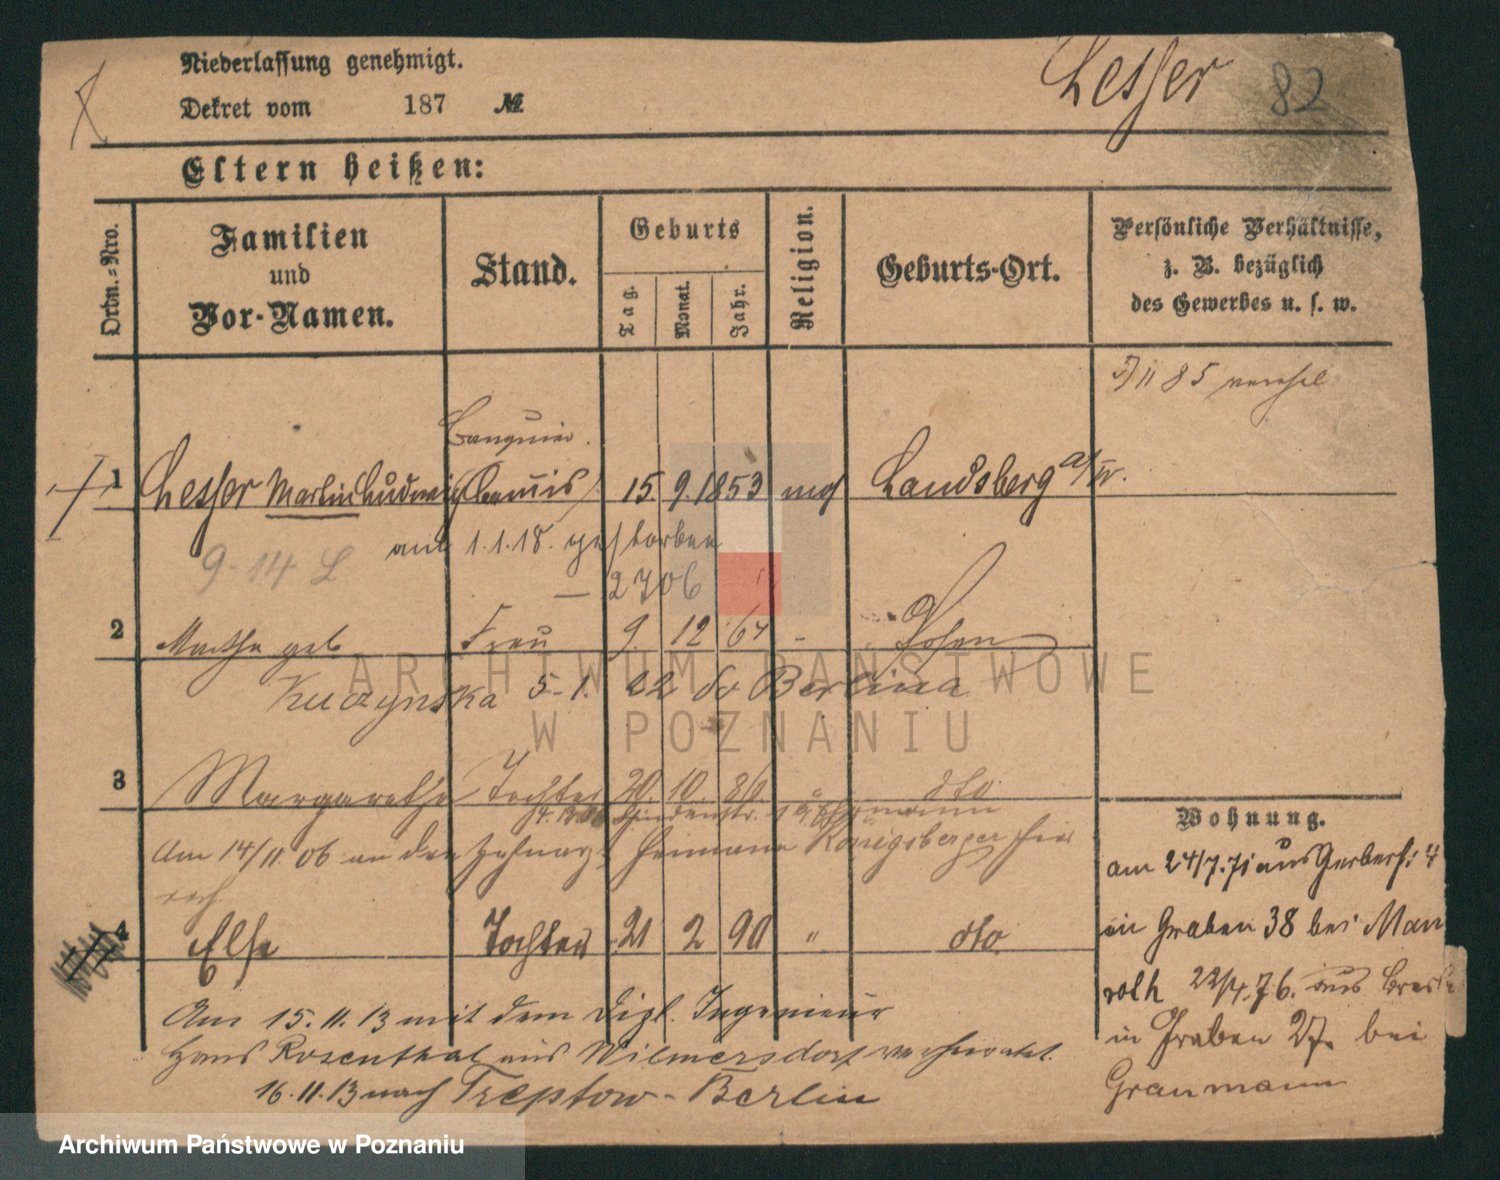 Niederlassung genehmigt.
Dekret vom 187 №
Lesser 82
Eltern heißen:
Ordn.-Nro.
Familien und Vor-Namen.
Stand.
Geburts
Tag. Monat. Jahr.
Religion.
Geburts-Ort.
Persönliche Verhältnisse,
z. B. bezüglich
des Gewerbes u. s. w.
85
Banquier.
1 Lesser Martin Ludwig 15. 9. 1853 Landsberg a/W.
9-14 L am 1.1.18. gestorben
2706
2 Martha geb Frau 9. 12 64 Posen
Kuczynska 5-1. 22 do Berlina
3 Margarethe Tochter 20. 10. 86 " dto
Am 14/11 06 an den Zahnarzt Hermann Königsberger
4 Else Tochter 21 2 90 " dto
Am 15.11.13 mit dem Dipl. Ingenieur
Hans Rosenthal aus Wilmersdorf verheiratet.
16.11.13 nach Treptow-Berlin
Wohnung.
am 24/7.71 aus Gerberst: 4
in Graben 38 bei Man
roth 22/4.76. aus
in Graben 27. bei
Graumann
ARCHIWUM PAŃSTWOWE
W POZNANIU
Archiwum Państwowe w Poznaniu